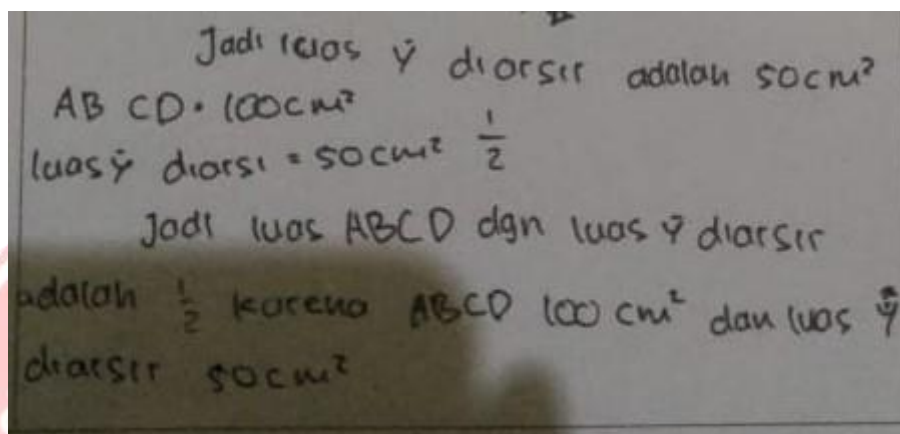 Jadi luas ÿ diarsir adalah 50cm²
AB CD = 100cm²
luas ÿ diarsi = 50cm² 1/2
Jadi luas ABCD dgn luas ÿ diarsir
adalah 1/2 karena ABCD 100 cm² dan luas ÿ
diarsir 50cm²